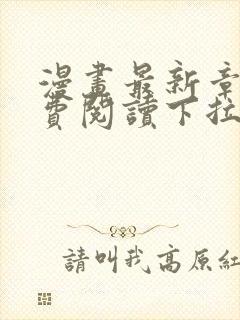 漫畫最新章
費閱讀下拉
請叫我高原紅